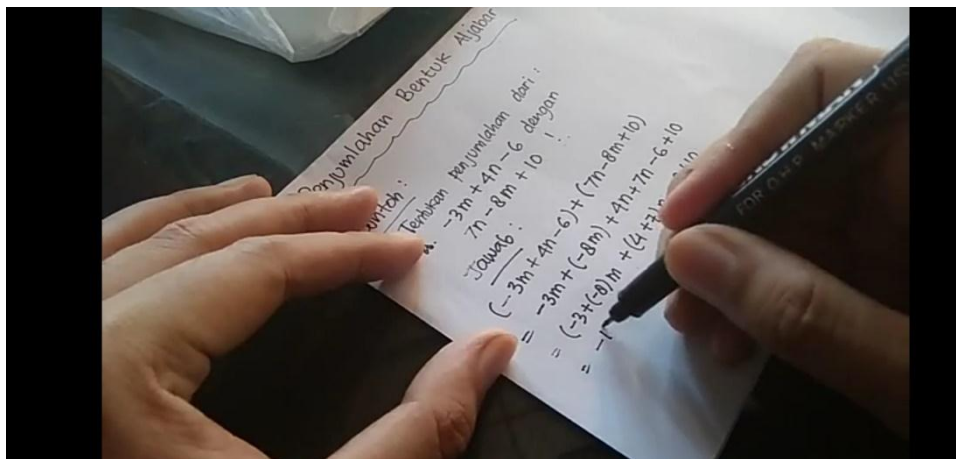 Penjumlahan Bentuk Aljabar
Tentukan penjumlahan dari :
-3m + 4n - 6 dengan
7n - 8m + 10 !
Jawab :
(-3m + 4n - 6) + (7n - 8m + 10)
= -3m + (-8m) + 4n + 7n - 6 + 10
= (-3+(-8)m + (4+7)
= -1
FOR O.H.P. MARKER